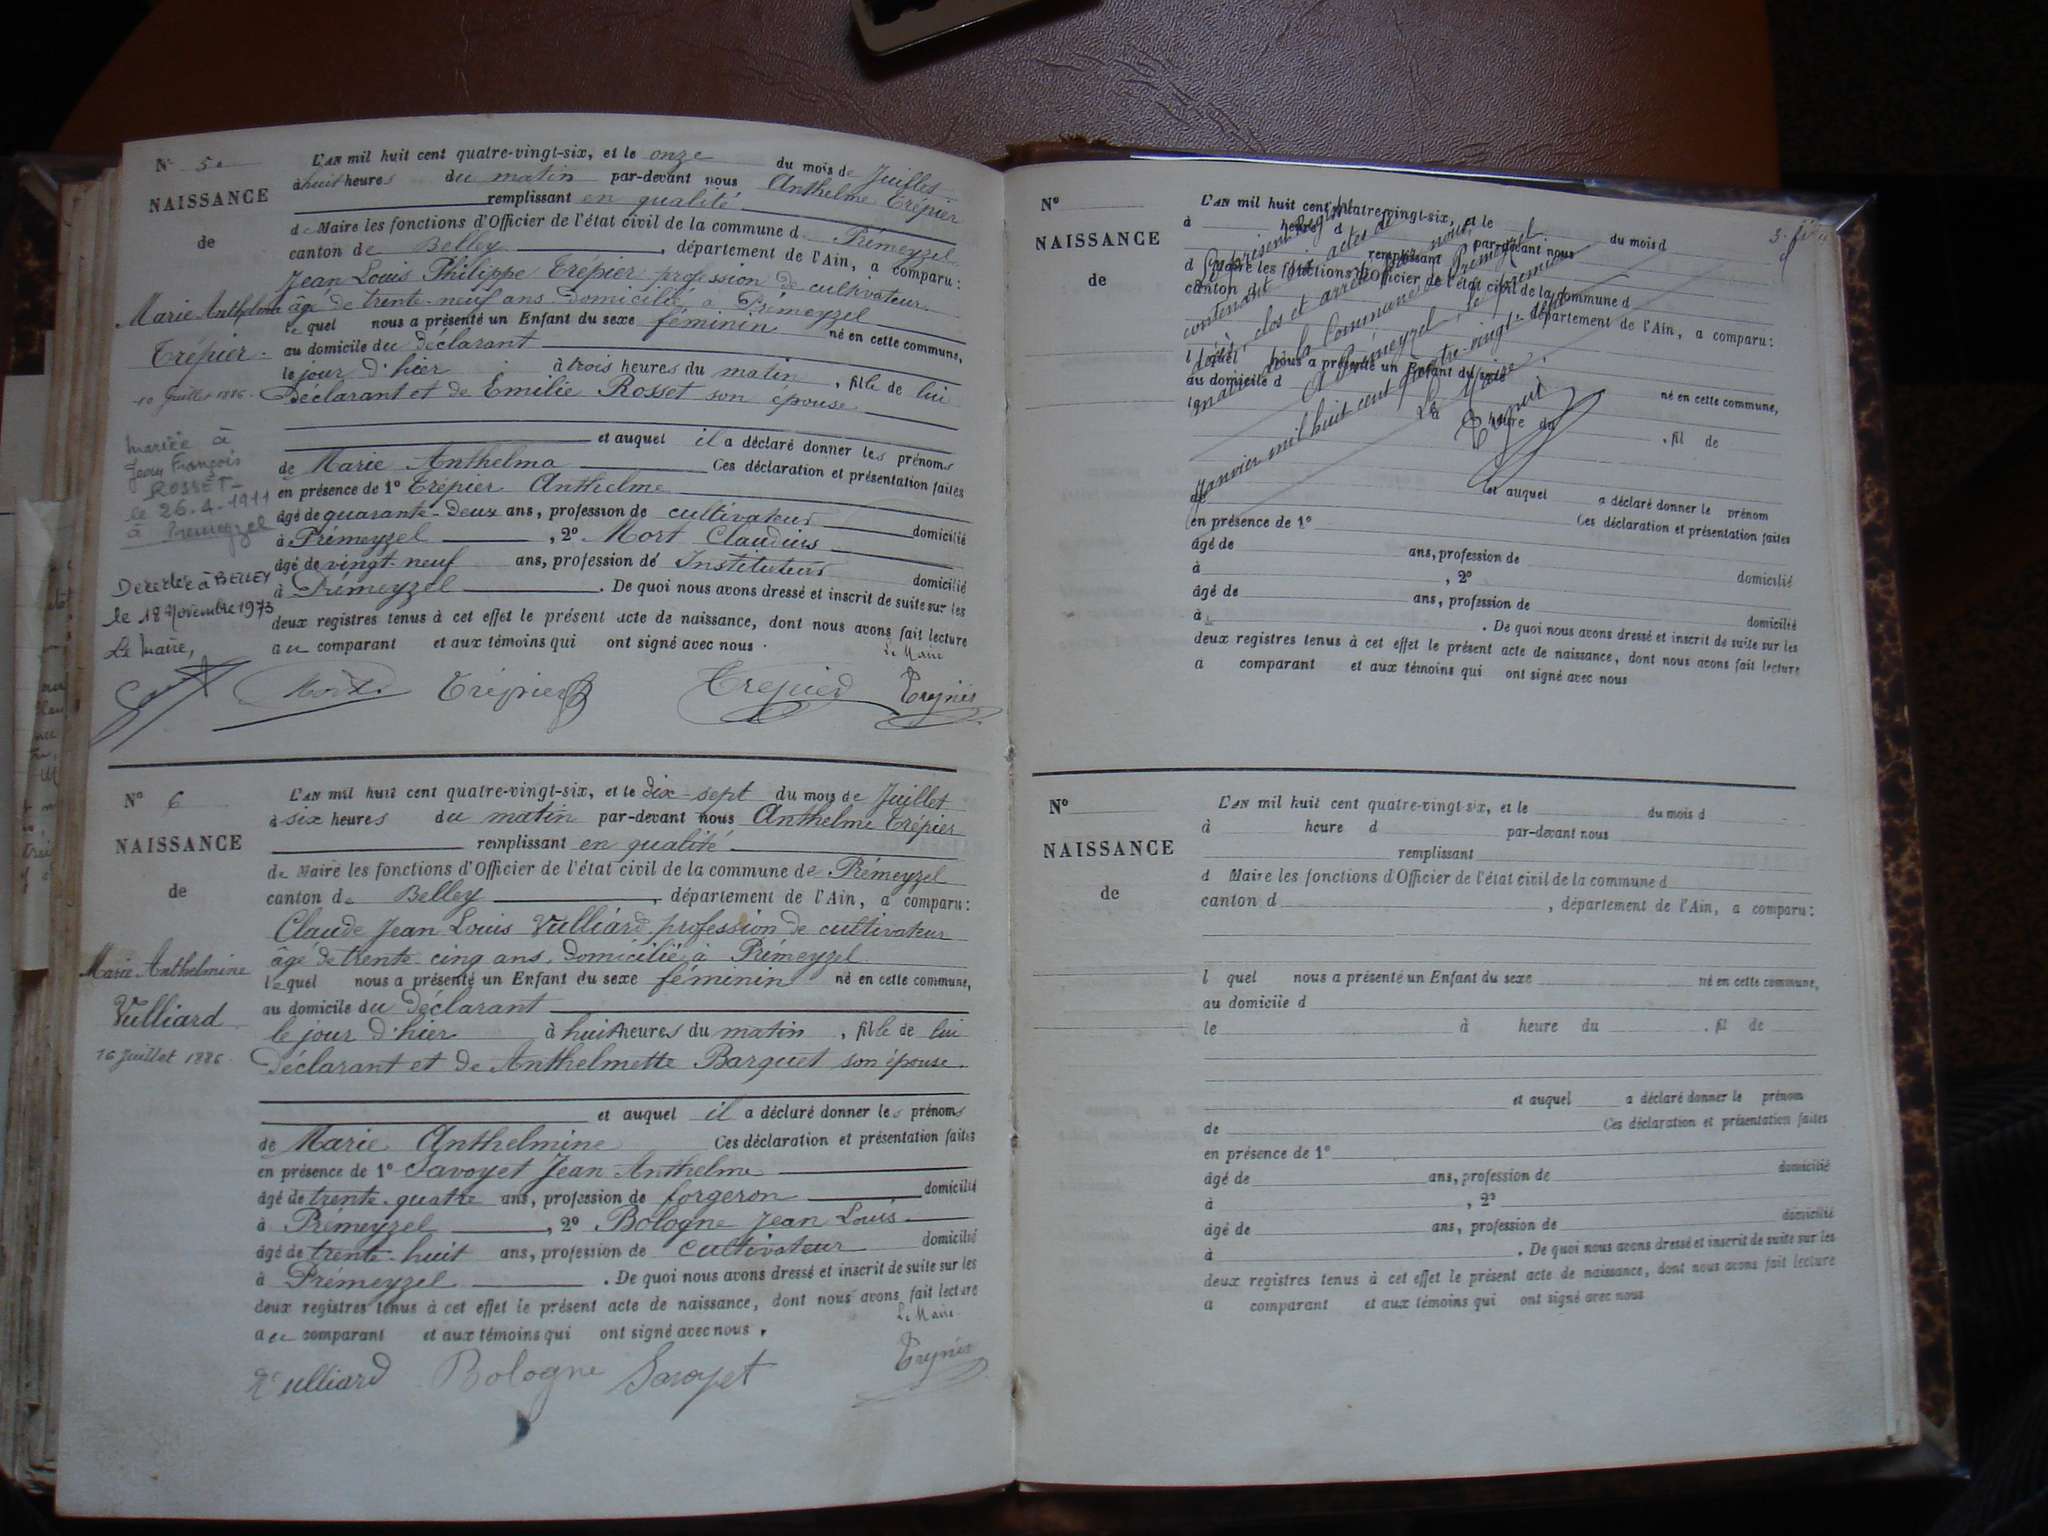 N° 5
NAISSANCE
de
Marie Anthelma
Trépier.
10 Juillet 1886.
mariée à
Jean François
ROSSET
le 26.4.1911
à Premeyzel
Décédée à BELLEY
le 18 Novembre 1973
Le Maire,
L'AN mil huit cent quatre-vingt-six, et le onze du mois de Juillet
à huit heures du matin par-devant nous Anthelme Trépier
remplissant en qualité
de Maire les fonctions d'Officier de l'état civil de la commune d Prémeyzel
canton de Belley, département de l'Ain, a comparu:
Jean Louis Philippe Trépier profession de cultivateur
âgé de trente-neuf ans domicilié à Prémeyzel
le quel nous a présenté un Enfant du sexe féminin né en cette commune,
au domicile du déclarant
le jour d'hier à trois heures du matin, fille de lui
Déclarant et de Emilie Rosset son épouse
et auquel il a déclaré donner les prénoms
de Marie Anthelma Ces déclaration et présentation faites
en présence de 1° Trépier Anthelme
âgé de quarante-deux ans, profession de cultivateur domicilié
à Prémeyzel, 2° Mort Claudius
âgé de vingt-neuf ans, profession de Instituteur domicilié
à Prémeyzel. De quoi nous avons dressé et inscrit de suite sur les
deux registres tenus à cet effet le présent acte de naissance, dont nous avons fait lecture
au comparant et aux témoins qui ont signé avec nous.
Le Maire
Mort Trépier Trepier
N° 6
NAISSANCE
de
Marie Anthelmine
Vulliard
16 Juillet 1886.
L'AN mil huit cent quatre-vingt-six, et le dix-sept du mois de Juillet
à six heures du matin par-devant nous Anthelme Trépier
remplissant en qualité
de Maire les fonctions d'Officier de l'état civil de la commune de Prémeyzel
canton de Belley, département de l'Ain, a comparu:
Claude Jean Louis Vulliard profession de cultivateur
âgé de trente cinq ans, domicilié à Prémeyzel
le quel nous a présenté un Enfant du sexe féminin né en cette commune,
au domicile du déclarant
le jour d'hier à huit heures du matin, fille de lui
déclarant et de Anthelmette Barquet son épouse.
et auquel il a déclaré donner les prénoms
de Marie Anthelmine Ces déclaration et présentation faites
en présence de 1° Savoyet Jean Anthelme
âgé de trente-quatre ans, profession de forgeron domicilié
à Prémeyzel, 2° Bologne Jean Louis
âgé de trente-huit ans, profession de cultivateur domicilié
à Prémeyzel. De quoi nous avons dressé et inscrit de suite sur les
deux registres tenus à cet effet le présent acte de naissance, dont nous avons fait lecture
au comparant et aux témoins qui ont signé avec nous.
Le Maire
Vulliard Bologne Savoyet
N°
NAISSANCE
de
L'AN mil huit cent quatre-vingt-six, et le du mois d
à heure d par-devant nous
remplissant
d Maire les fonctions d'Officier de l'état civil de la commune d
canton d département de l'Ain, a comparu:
l quel nous a présenté un Enfant du sexe né en cette commune,
au domicile d
le à heure du, fil de
Le présent Registre
contenant six actes de
clos et arrêté par nous
maire de la Commune de Prémeyzel
A Prémeyzel, le premier
Janvier mil huit cent quatre-vingt-sept
Le Maire.
et auquel a déclaré donner le prénom
de Ces déclaration et présentation faites
en présence de 1°
âgé de ans, profession de domicilié
à, 2°
âgé de ans, profession de domicilié
à. De quoi nous avons dressé et inscrit de suite sur les
deux registres tenus à cet effet le présent acte de naissance, dont nous avons fait lecture
a comparant et aux témoins qui ont signé avec nous
N°
NAISSANCE
de
L'AN mil huit cent quatre-vingt-six, et le du mois d
à heure d par-devant nous
remplissant
d Maire les fonctions d'Officier de l'état civil de la commune d
canton d, département de l'Ain, a comparu:
l quel nous a présenté un Enfant du sexe né en cette commune,
au domicile d
le à heure du, fil de
et auquel a déclaré donner le prénom
de Ces déclaration et présentation faites
en présence de 1°
âgé de ans, profession de domicilié
à, 2°
âgé de ans, profession de domicilié
à. De quoi nous avons dressé et inscrit de suite sur les
deux registres tenus à cet effet le présent acte de naissance, dont nous avons fait lecture
a comparant et aux témoins qui ont signé avec nous